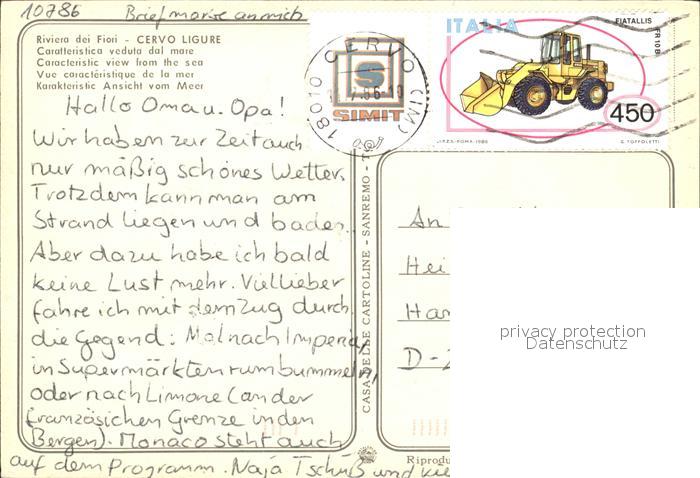 10786 Briefmarke an mich
Riviera dei Fiori - CERVO LIGURE
Caratteristica veduta dal mare
Characteristic view from the sea
Vue caractéristique de la mer
Karakteristic Ansicht vom Meer
Hallo Oma u. Opa!
Wir haben zur Zeit auch
nur mäßig schönes Wetter.
Trotzdem kann man am
Strand liegen und baden.
Aber dazu habe ich bald
keine Lust mehr. Viellieber
fahre ich mit dem Zug durch
die Gegend: Mal nach Imperia,
in Supermärkten rumbummeln,
oder nach Limone (an der
französichen Grenze in den
Bergen). Monaco steht auch
auf dem Programm. Naja Tschüß und
18010 CERVO (IM)
S
SIMIT
ITALIA
FIATALLIS
FR10B
450
I.P.Z.S.-ROMA-1986
G. TOFFOLETTI
CASA DELLE CARTOLINE - SANREMO -
An
Hei
Han
D-2
privacy protection
Datenschutz
Riprodu